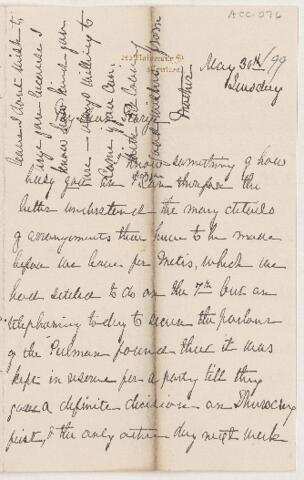 ACC-076
University St
Montreal
May 30th/99
Tuesday
My dear Mary
I know something of how
busy you are & can therefore the
better understand the many details
of arrangements that have to be made
before we leave for Metis, which we
had settled to do on the 7th but on
telephoning today to secure the parlour
of the Pulman found that it was
kept in reserve for a party till they
gave a definite decision on Thursday
next, & the only other day next week
because I dont wish to
urge you because I
know how kind you
are — always willing to
come if you can.
With love
and wishes from
Mother